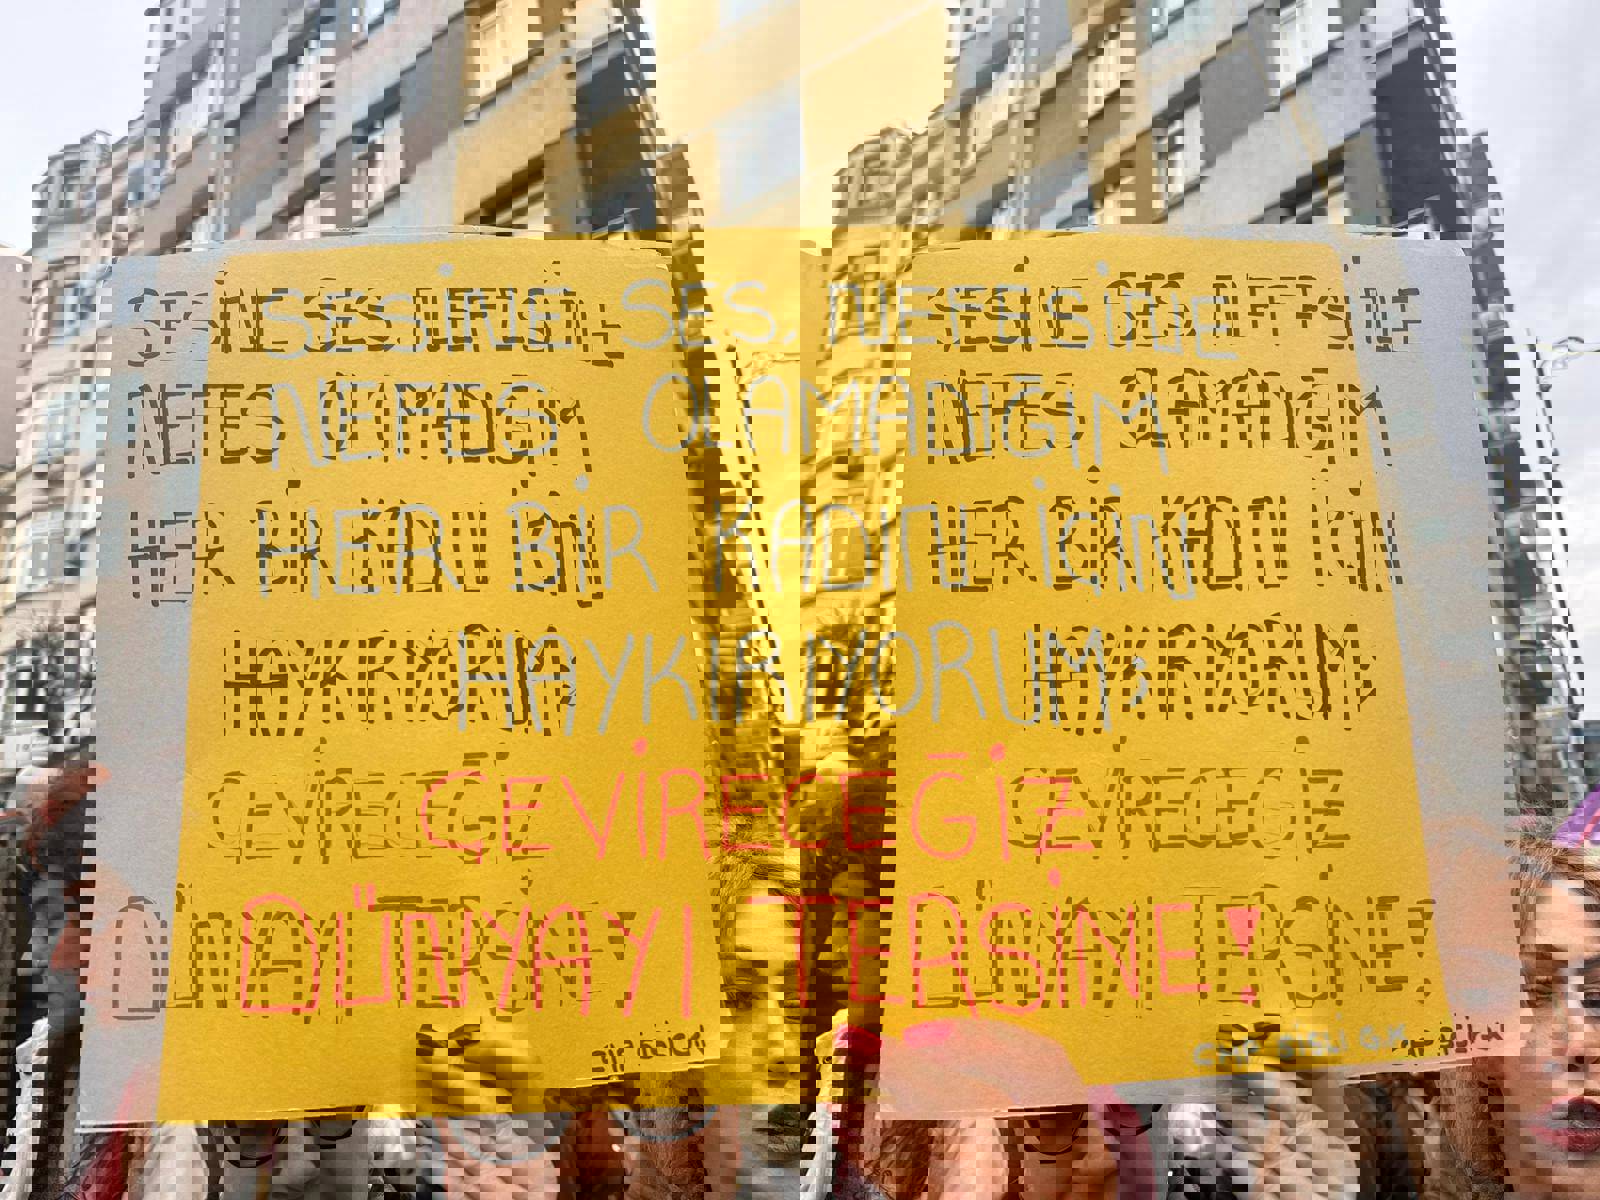 SESİNE SES, NEFESİNE
NEFES OLAMADIĞIM
HER BİR KADIN İÇİN
HAYKIRIYORUM;
ÇEVİRECEĞİZ
DÜNYAYI TERSİNE!
CHP ŞİŞLİ G.K.